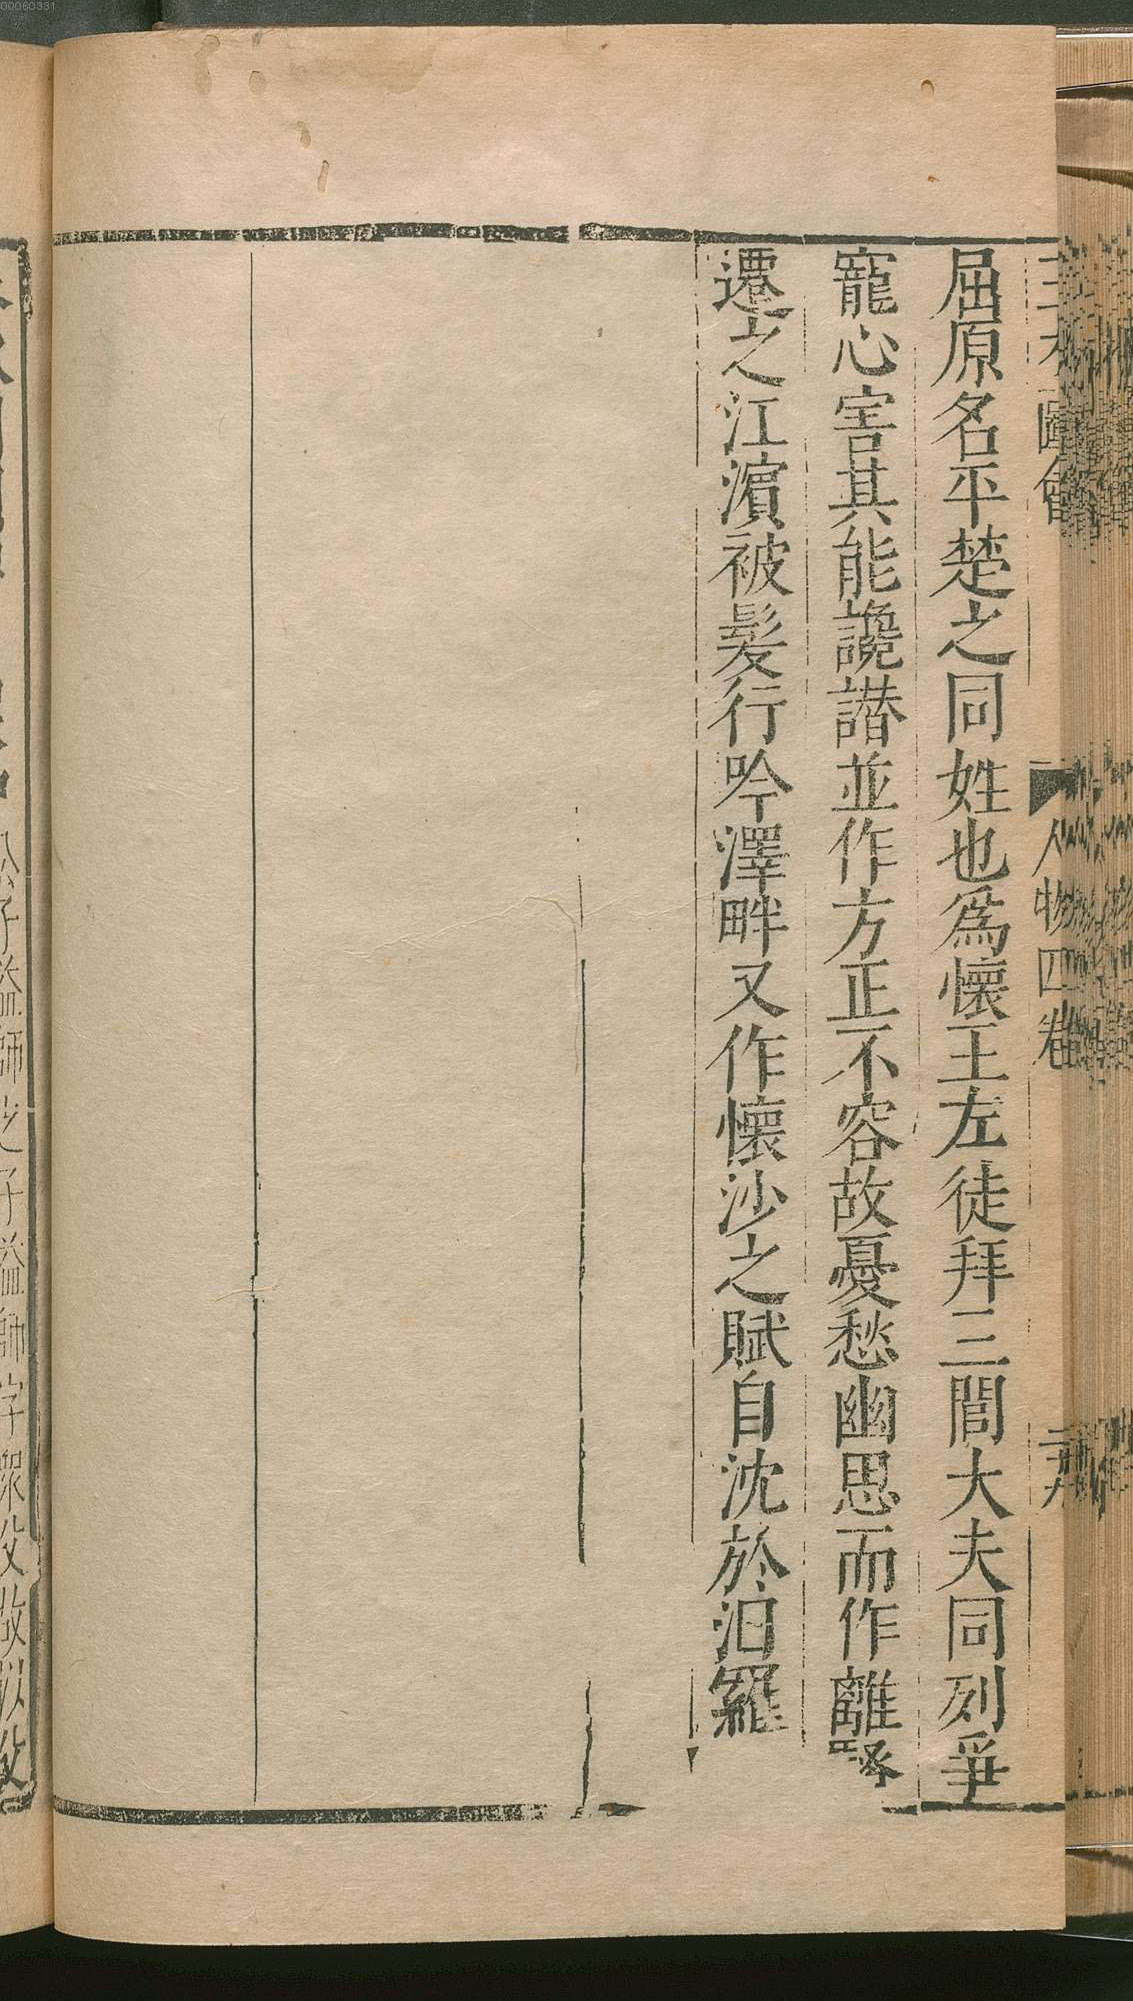 三才圖會 人物四卷
屈原名平楚之同姓也爲懷王左徒拜三閭大夫同列爭
寵心害其能讒譖並作方正不容故憂愁幽思而作離騷
遷之江濵被髮行吟澤畔又作懷沙之賦自沈於汨羅
公子益師之子益師字衆父故以父
00060331